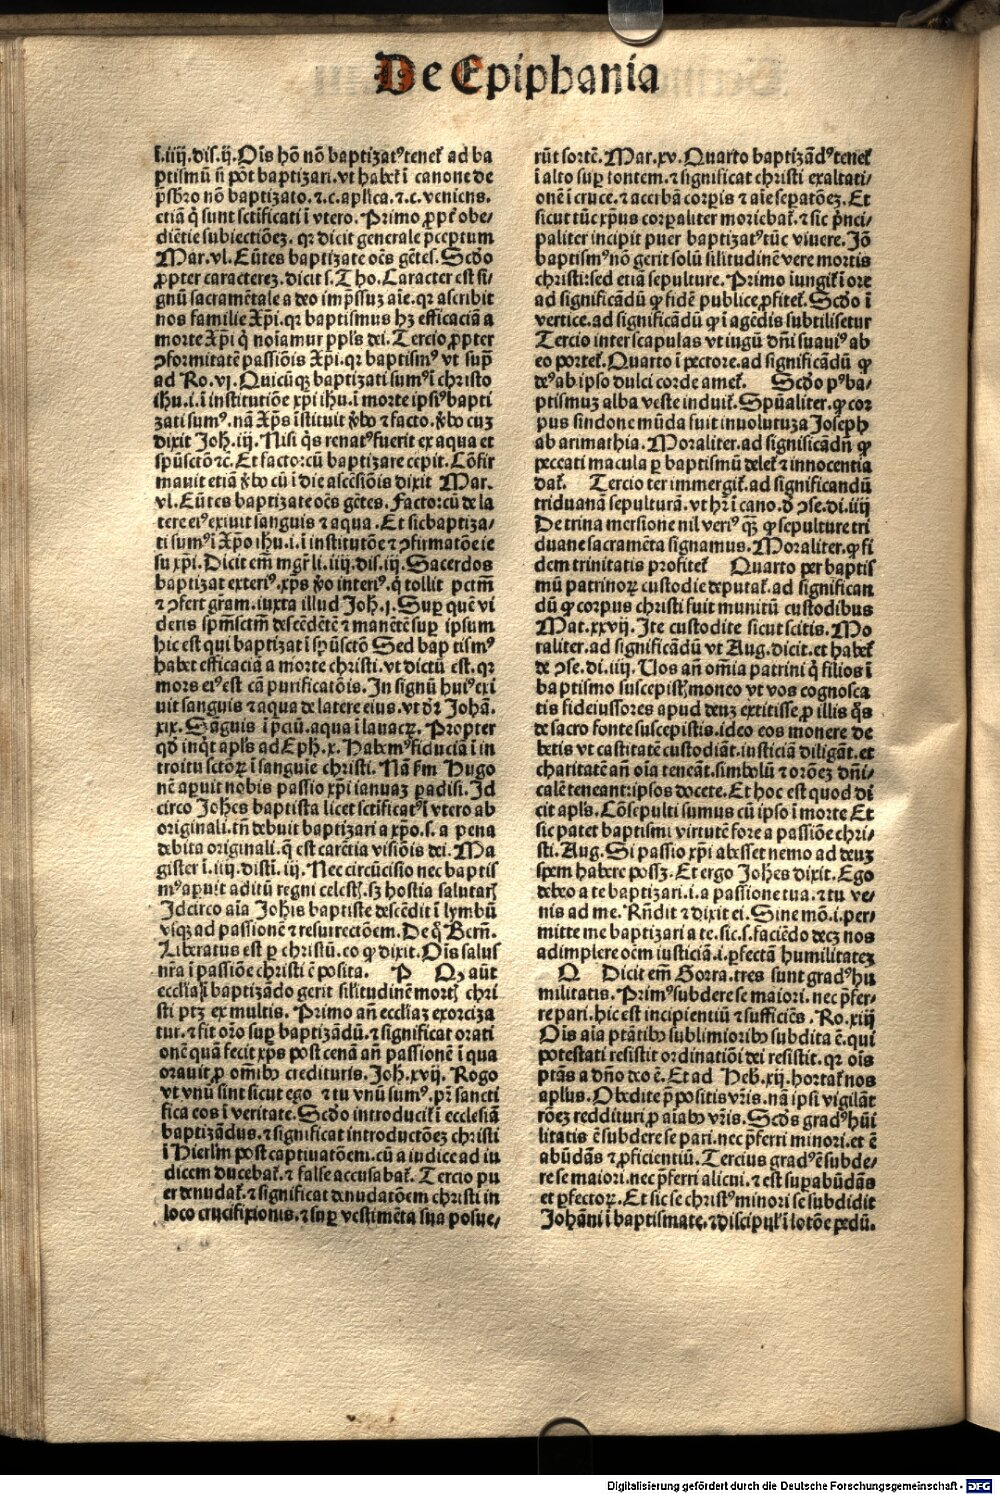 De Epiphania
ī.iiij.dis.ij. Oīs hō nō baptizatꝰ tenet̃ ad ba
ptismū si pōt baptizari. vt habet̃ ī canone de
p̄sbr̄o nō baptizato. ⁊.c. aplica. ⁊.c. veniens.
etiā q̄ sunt sctificati ī vtero. Primo ꝓpt̄ obe/
diētie subiectiōez. qꝛ dicit generale p̄ceptum
Mar.vl. Eūtes baptizate oēs gētes. Scd̄o
ꝓpter caracterez. dicit s. Tho. Caracter est si/
gnū sacramētale a deo imp̄ssuz aīe. qꝛ ascribit
nos familie Xp̄i. qꝛ baptismus hꝫ efficaciā a
morte Xp̄i q̄ noīamur ppl̄s dei. Tercio ꝓpter
ꝯformitatē passiōis Xp̄i. qꝛ baptismꝰ vt sup̄
ad Ro.vj. Quicūqꝫ baptizati sumꝰ ī christo
ihu.i. ī institutiōe xp̄i ihu.i. ī morte ipsiꝰ bapti
zati sumꝰ. nā Xp̄s īstituit v̄bo ⁊ facto. v̄bo cuz
dixit Joh̄.iij. Nisi q̄s renatꝰ fuerit ex aqua et
spūsctō ⁊c. Et facto: cū baptizare cepit. Cōfir
mauit etiā v̄bo cū ī die ascēsiōis dixit Mar.
vl. Eūtes baptizate oēs gētes. Facto: cū de la
tere eiꝰ exiuit sanguis ⁊ aqua. Et sic baptiza/
ti sumꝰ ī Xp̄o ihu.i. ī institutōe ⁊ ꝯfirmatōe ie
su xp̄i. Dicit em̄ mgr̄ li.iiij.dis.iij. Sacerdos
baptizat exteriꝰ. xp̄s v̄o interiꝰ. q̄ tollit pctm̄
⁊ ꝯfert gr̄am. iuxta illud Joh̄.j. Suꝑ quē vi
deris spm̄sctm̄ descēdētē ⁊ manētē suꝑ ipsum
hic est qui baptizat ī spūsctō Sed baptismꝰ
habet efficaciā a morte christi. vt dictū est. qꝛ
mors eiꝰ est cā purificatōis. In signū huiꝰ exi
uit sanguis ⁊ aqua de latere eius. vt dr̄ Johā.
xix. Sāguis ī p̄ciū. aqua ī lauacrꝫ. Propter
qd̄ inqt̄ apl̄s ad Eph̄.x. Habemꝰ fiduciā ī in
troitu sctōꝝ ī sanguie christi. Nā s̄m Hugo
nē aꝑuit nobis passio xp̄i ianuaz ꝑadisi. Id
circo Joh̄es baptista licet sctificatꝰ ī vtero ab
originali. tn̄ debuit baptizari a xp̄o.s. a pena
debita originali. q̄ est carētia visiōis dei. Ma
gister ī.iiij.distī.iij. Nec circūcisio nec baptis
mꝰ aꝑuit aditū regni celestꝭ. sꝫ hostia salutarꝭ
Idcirco aīa Joh̄is baptiste descēdit ī lymbū
vsqꝫ ad passionē ⁊ resurrectōem. De q̄ Bern̄.
Liberatus est ꝑ christū. eo ꝙ dixit. Oīs salus
nr̄a ī passiōe christi ē posita. P Qꝫ aūt
ecclīa ī baptizādo gerit silitudinē mortꝭ chri
sti ptꝫ ex multis. Primo añ ecclīaz exorciza
tur. ⁊ fit or̄o suꝑ baptizādū. ⁊ significat orati
onē quā fecit xp̄s post cenā añ passionē ī qua
orauit ꝓ om̄ibꝰ credituris. Joh̄.xvij. Rogo
vt vnū sint sicut ego ⁊ tu vnū sumꝰ. pr̄ sancti
fica eos ī veritate. Scd̄o introducit̃ ī ecclesiā
baptizādus. ⁊ significat introductōez christi
ī Hierl̄m post captiuatōem. cū a iudice ad iu
dicem ducebat̃. ⁊ false accusabat̃. Tercio pu
er denudat̃. ⁊ significat denudatōem christi in
loco crucifixionis. ⁊ suꝑ vestimēta sua posue/
rūt sortē. Mar.xv. Quarto baptizādꝰ tenet̃
ī alto suꝑ fontem. ⁊ significat christi exaltati/
onē ī cruce. ⁊ acerbā corꝑis ⁊ aīe seꝑatōez. Et
sicut tūc xp̄us corꝑaliter moriebat̃. ⁊ sic p̄nci/
paliter incipit puer baptizatꝰ tūc viuere. Iō
baptismꝰ nō gerit solū silitudinē vere mortis
christi: sed etiā sepulture. Primo iungit̃ ī ore
ad significādū ꝙ fidē publice ꝓfitet̃. Scd̄o ī
vertice. ad significādū ꝙ ī agēdis subtilisetur
Tercio inter scapulas vt iugū dn̄i suauiꝰ ab
eo portet̃. Quarto ī pectore. ad significādū ꝙ
deꝰ ab ipso dulci corde amet̃. Scd̄o pꝰ ba/
ptismuz alba veste induit̃. Spūaliter. ꝙ cor
pus sindone mūda fuit inuolutuza Joseph
ab arimathia. Moraliter. ad significādū ꝙ
peccati macula ꝑ baptismū delet̃ ⁊ innocentia
dat̃. Tercio ter immergit̃. ad significandū
triduanā sepulturā. vt hr̄ ī cano. d̄ ꝯse.di.iiij
De trina mersione nil veriꝰ qꝫ ꝙ sepulture tri
duane sacramēta signamus. Moraliter. ꝙ fi
dem trinitatis profitet̃ Quarto per baptis
mū patrinoꝝ custodie deputat̃. ad significan
dū ꝙ corpus christi fuit munitū custodibus
Mat.xxvij. Ite custodite sicut scitis. Mo
raliter. ad significādū vt Aug. dicit. et habet̃
de ꝯse.di.iiij. Uos añ om̄ia patrini q̄ filios ī
baptismo suscepistꝭ. moneo vt vos cognosca
tis fideiussores apud deuz extitisse ꝓ illis q̄s
de sacro fonte suscepistis. ideo eos monere de
betis vt castitatē custodiāt. iusticiā diligāt. et
charitatē añ oīa teneāt. simbolū ⁊ orōez dn̄i/
calē teneant: ipsos docete. Et hoc est quod di
cit apl̄s. Cōsepulti sumus cū ipso ī morte Et
sic patet baptismi virtutē fore a passiōe chri/
sti. Aug. Si passio xp̄i abesset nemo ad deuz
spem habere possꝫ. Et ergo Joh̄es dixit. Ego
debeo a te baptizari.i.a passione tua. ⁊ tu ve/
nis ad me. Rn̄dit ⁊ dixit ei. Sine mō.i. per/
mitte me baptizari a te. sic.s. faciēdo decꝫ nos
adimplere oēm iusticiā.i. ꝑfectā humilitatez
Q Dicit em̄ Gorra. tres sunt gradꝰ hu
militatis. Primꝰ subdere se maiori. nec p̄fer/
re pari. hic est incipientiū ⁊ sufficiēs. Ro.xiij
Oīs aīa ptātibꝰ sublimioribꝰ subdita ē. qui
potestati resistit ordinatiōi dei resistit. qꝛ oīs
ptās a dn̄o deo ē. Et ad Heb.xij. hortat̃ nos
aplus. Obedite p̄positis vr̄is. nā ipsi vigilāt
rōez reddituri ꝓ aīabꝰ vr̄is. Scd̄s gradꝰ hūi
litatis ē subdere se pari. nec p̄ferri minori. et ē
abūdās ⁊ ꝓficientiū. Tercius gradꝰ ē subde/
re se maiori. nec p̄ferri alicui. ⁊ est suꝑabūdās
et ꝑfectoꝝ. Et sic se christꝰ minori se subdidit
Johāni ī baptismate. ⁊ discipul̃ ī lotōe pedū.
Digitalisierung gefördert durch die Deutsche Forschungsgemeinschaft - DFG